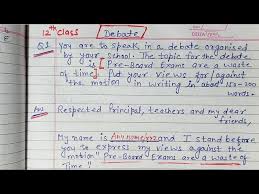 12th Class
Debate
Q1 You are to speak in a debate organised
by your school. The topic for the debate
is [Pre-Board Exams are a waste
of time]. Put your views for/against
the motion in writing in about 150-200
words.
Ans Respected Principal, teachers and my dear
friends,
My name is Any name/xyz and I stand before
you to express my views against the
motion "Pre-Board Exams are a waste of
Time".